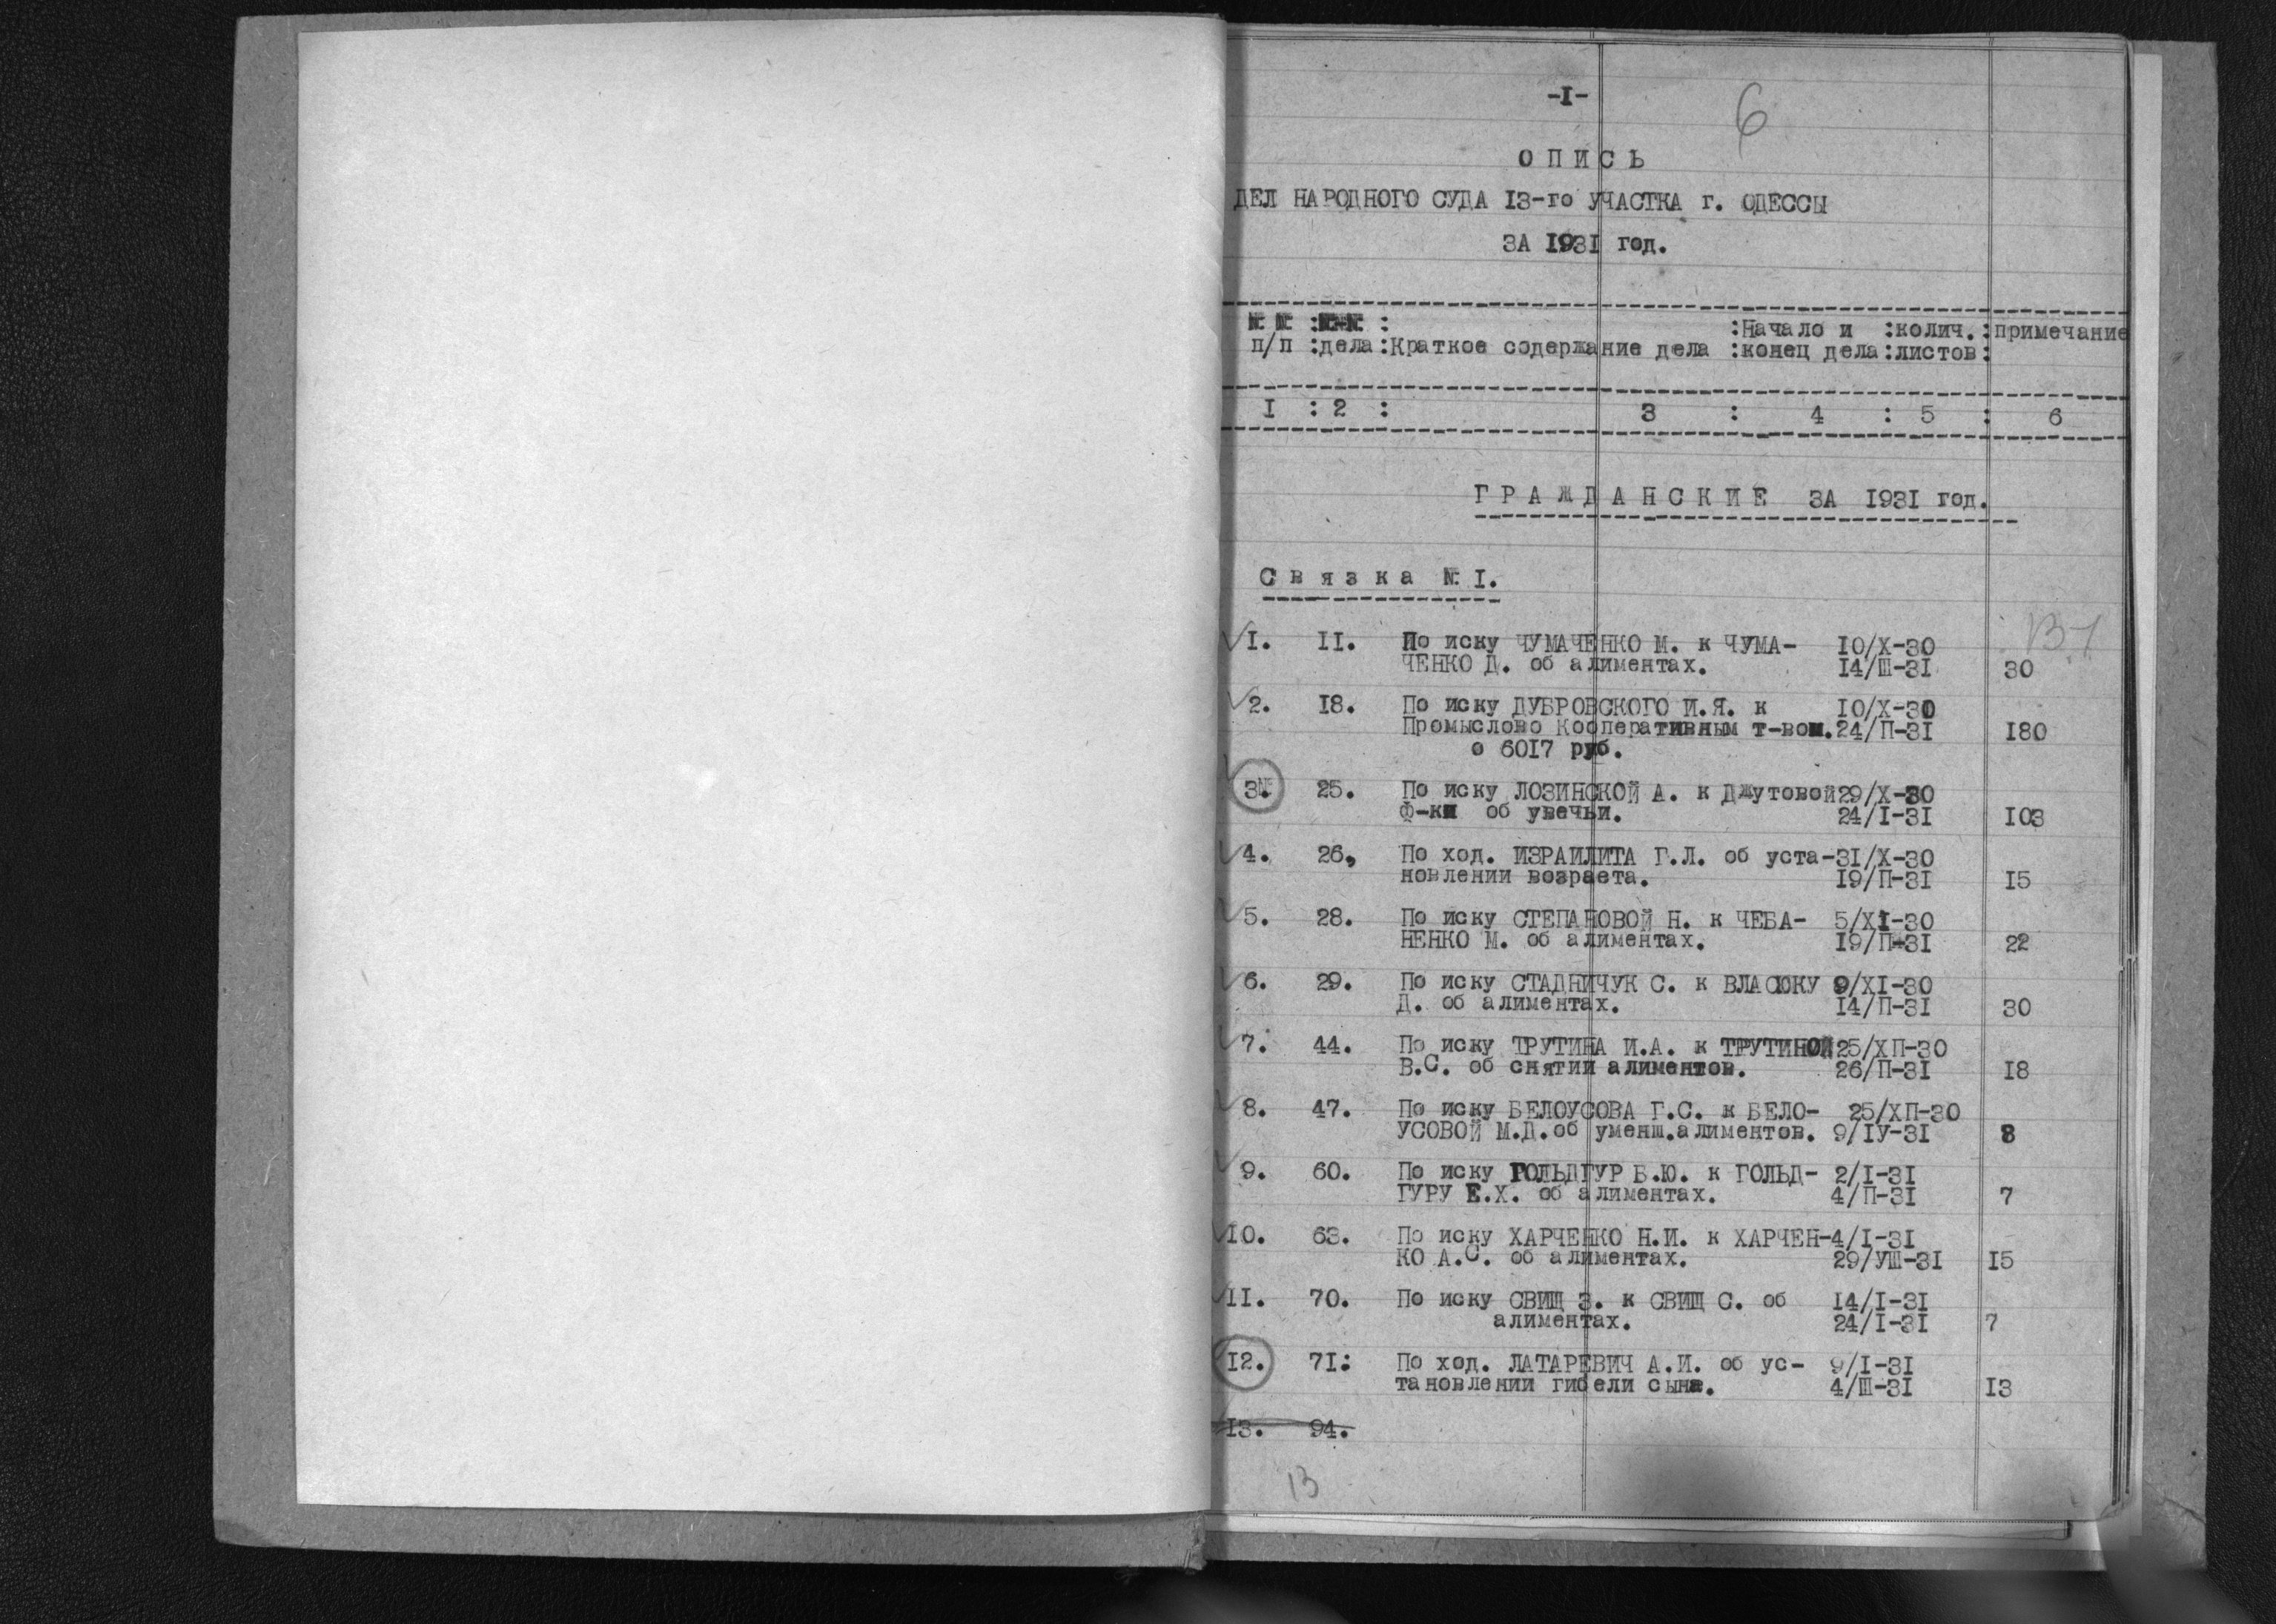 -I-
6
О П И С Ь
ДЕЛ НАРОДНОГО СУДА I3-го УЧАСТКА г. ОДЕССЫ
ЗА I93I год.
№ № :№-№ : :Начало и :колич.:примечание
п/п :дела:Краткое содержание дела :конец дела:листов:
I : 2 : 3 : 4 : 5 : 6
Г Р А Ж Д А Н С К И Е ЗА I93I год.
С в я з к а № I.
I. II. По иску ЧУМАЧЕНКО М. к ЧУМА- IO/X-30
ЧЕНКО Д. об алиментах. I4/Ш-3I 30
2. I8. По иску ДУБРОВСКОГО И.Я. к IO/X-30
Промыслово Кооперативным т-вом. 24/П-3I I80
о 60I7 руб.
3. 25. По иску ЛОЗИНСКОЙ А. к Джутовой 29/X-30
Ф-ки об увечьи. 24/I-3I I03
4. 26, По ход. ИЗРАИЛИТА Г.Л. об уста- 3I/X-30
новлении возраста. I9/П-3I I5
5. 28. По иску СТЕПАНОВОЙ Н. к ЧЕБА- 5/XI-30
НЕНКО М. об алиментах. I9/П-3I 22
6. 29. По иску СТАДНИЧУК С. к ВЛАСЮКУ 9/XI-30
Д. об алиментах. I4/П-3I 30
7. 44. По иску ТРУТИНА И.А. к ТРУТИНОЙ 25/XП-30
В.С. об снятии алиментов. 26/П-3I I8
8. 47. По иску БЕЛОУСОВА Г.С. к БЕЛО- 25/XП-30
УСОВОЙ М.Д.об уменш.алиментов. 9/IУ-3I 8
9. 60. По иску ГОЛЬДГУР Б.Ю. к ГОЛЬД- 2/I-3I
ГУРУ Е.Х. об алиментах. 4/П-3I 7
I0. 63. По иску ХАРЧЕНКО Н.И. к ХАРЧЕН- 4/I-3I
КО А.С. об алиментах. 29/УШ-3I I5
II. 70. По иску СВИЩ З. к СВИЩ С. об I4/I-3I
алиментах. 24/I-3I 7
I2. 7I: По ход. ЛАТАРЕВИЧ А.И. об ус- 9/I-3I
тановлении гибели сына. 4/Ш-3I I3
I3. 94.
13